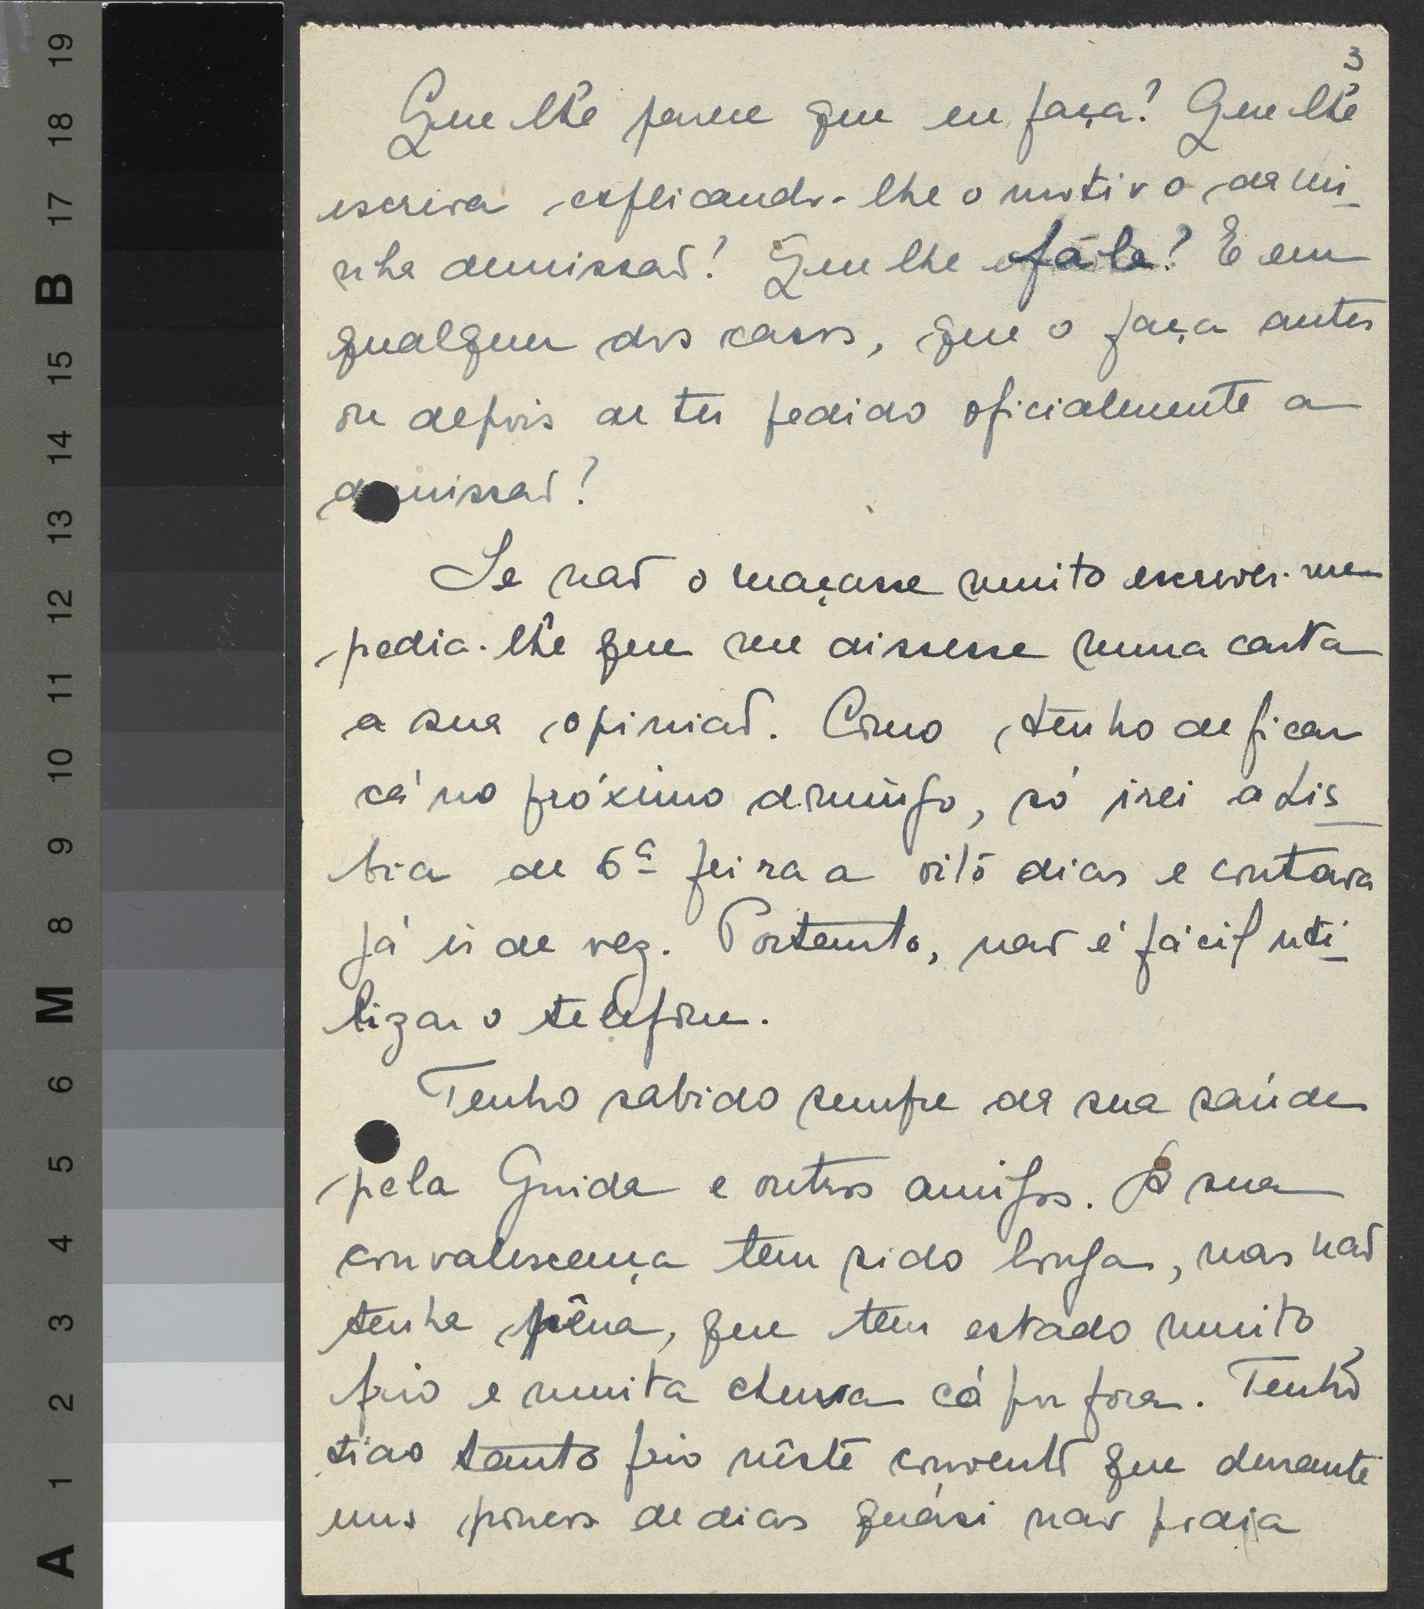 3
Que lhe parece que eu faça? Que lhe
escreva explicando-lhe o motivo da mi-
nha demissão? Que lhe fále? E em
qualquer dos casos, que o faça antes
ou depois de ter pedido oficialmente a
demissão?
Se não o maçasse muito escrever-me
pedia-lhe que me dissesse numa carta
a sua opinião. Como tenho de ficar
cá no próximo domingo, só irei a Lis-
boa de 6ª feira a oito dias e contava
já ir de vez. Portanto, não é fácil uti-
lizar o telefone.
Tenho sabido sempre da sua saúde
pela Guida e outros amigos. A sua
convalescença tem sido longa, mas não
tenha pêna, que tem estado muito
frio e muita chuva cá por fora. Tenho
tido tanto frio nêste convento que durante
uns poucos de dias quási não podia
A 1 2 3 4 5 6 M 8 9 10 11 12 13 14 15 B 17 18 19